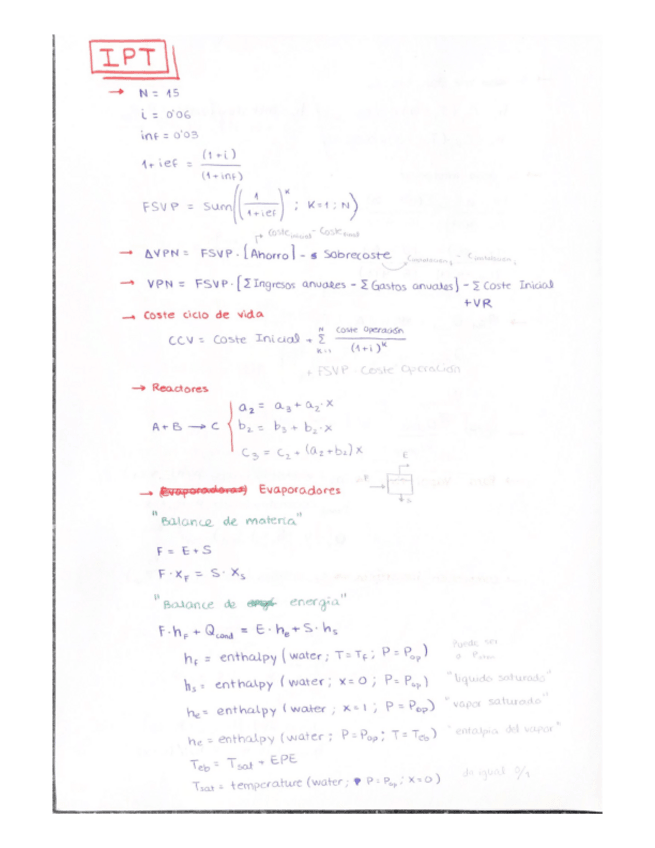 IPT
→ N = 15
i = 0'06
inf = 0'03
1+ief = (1+i) / (1+inf)
FSVP = Sum((1 / 1+ief)^K ; K=1 ; N)
Coste inicial - Coste final
→ ΔVPN = FSVP·[Ahorro] - Sobrecoste
→ VPN = FSVP·[Σ Ingresos anuales - Σ Gastos anuales] - Σ Coste Inicial
+VR
→ Coste ciclo de vida
CCV = Coste Inicial + Σ K=1 N Coste Operación / (1+i)^K
+ FSVP · Coste Operación
→ Reactores
a₂ = a₃ + a₂·x
A+B → C b₂ = b₃ + b₂·x
C₃ = C₂ + (a₂+b₂)x
E
→ Evaporadores
F
S
"Balance de materia"
F = E + S
F·X_F = S·X_S
"Balance de energia"
F·h_F + Q_cond = E·h_E + S·h_S
h_F = enthalpy (water; T=T_F; P=P_op) Puede ser
h_S = enthalpy (water; x=0; P=P_op) "líquido saturado"
h_e = enthalpy (water; x=1; P=P_op) "vapor saturado"
h_e = enthalpy (water; P=P_op; T=T_eb) "entalpía del vapor"
T_eb = T_sat + EPE
T_sat = temperature (water; P=P_op; x=0) da igual 0/1